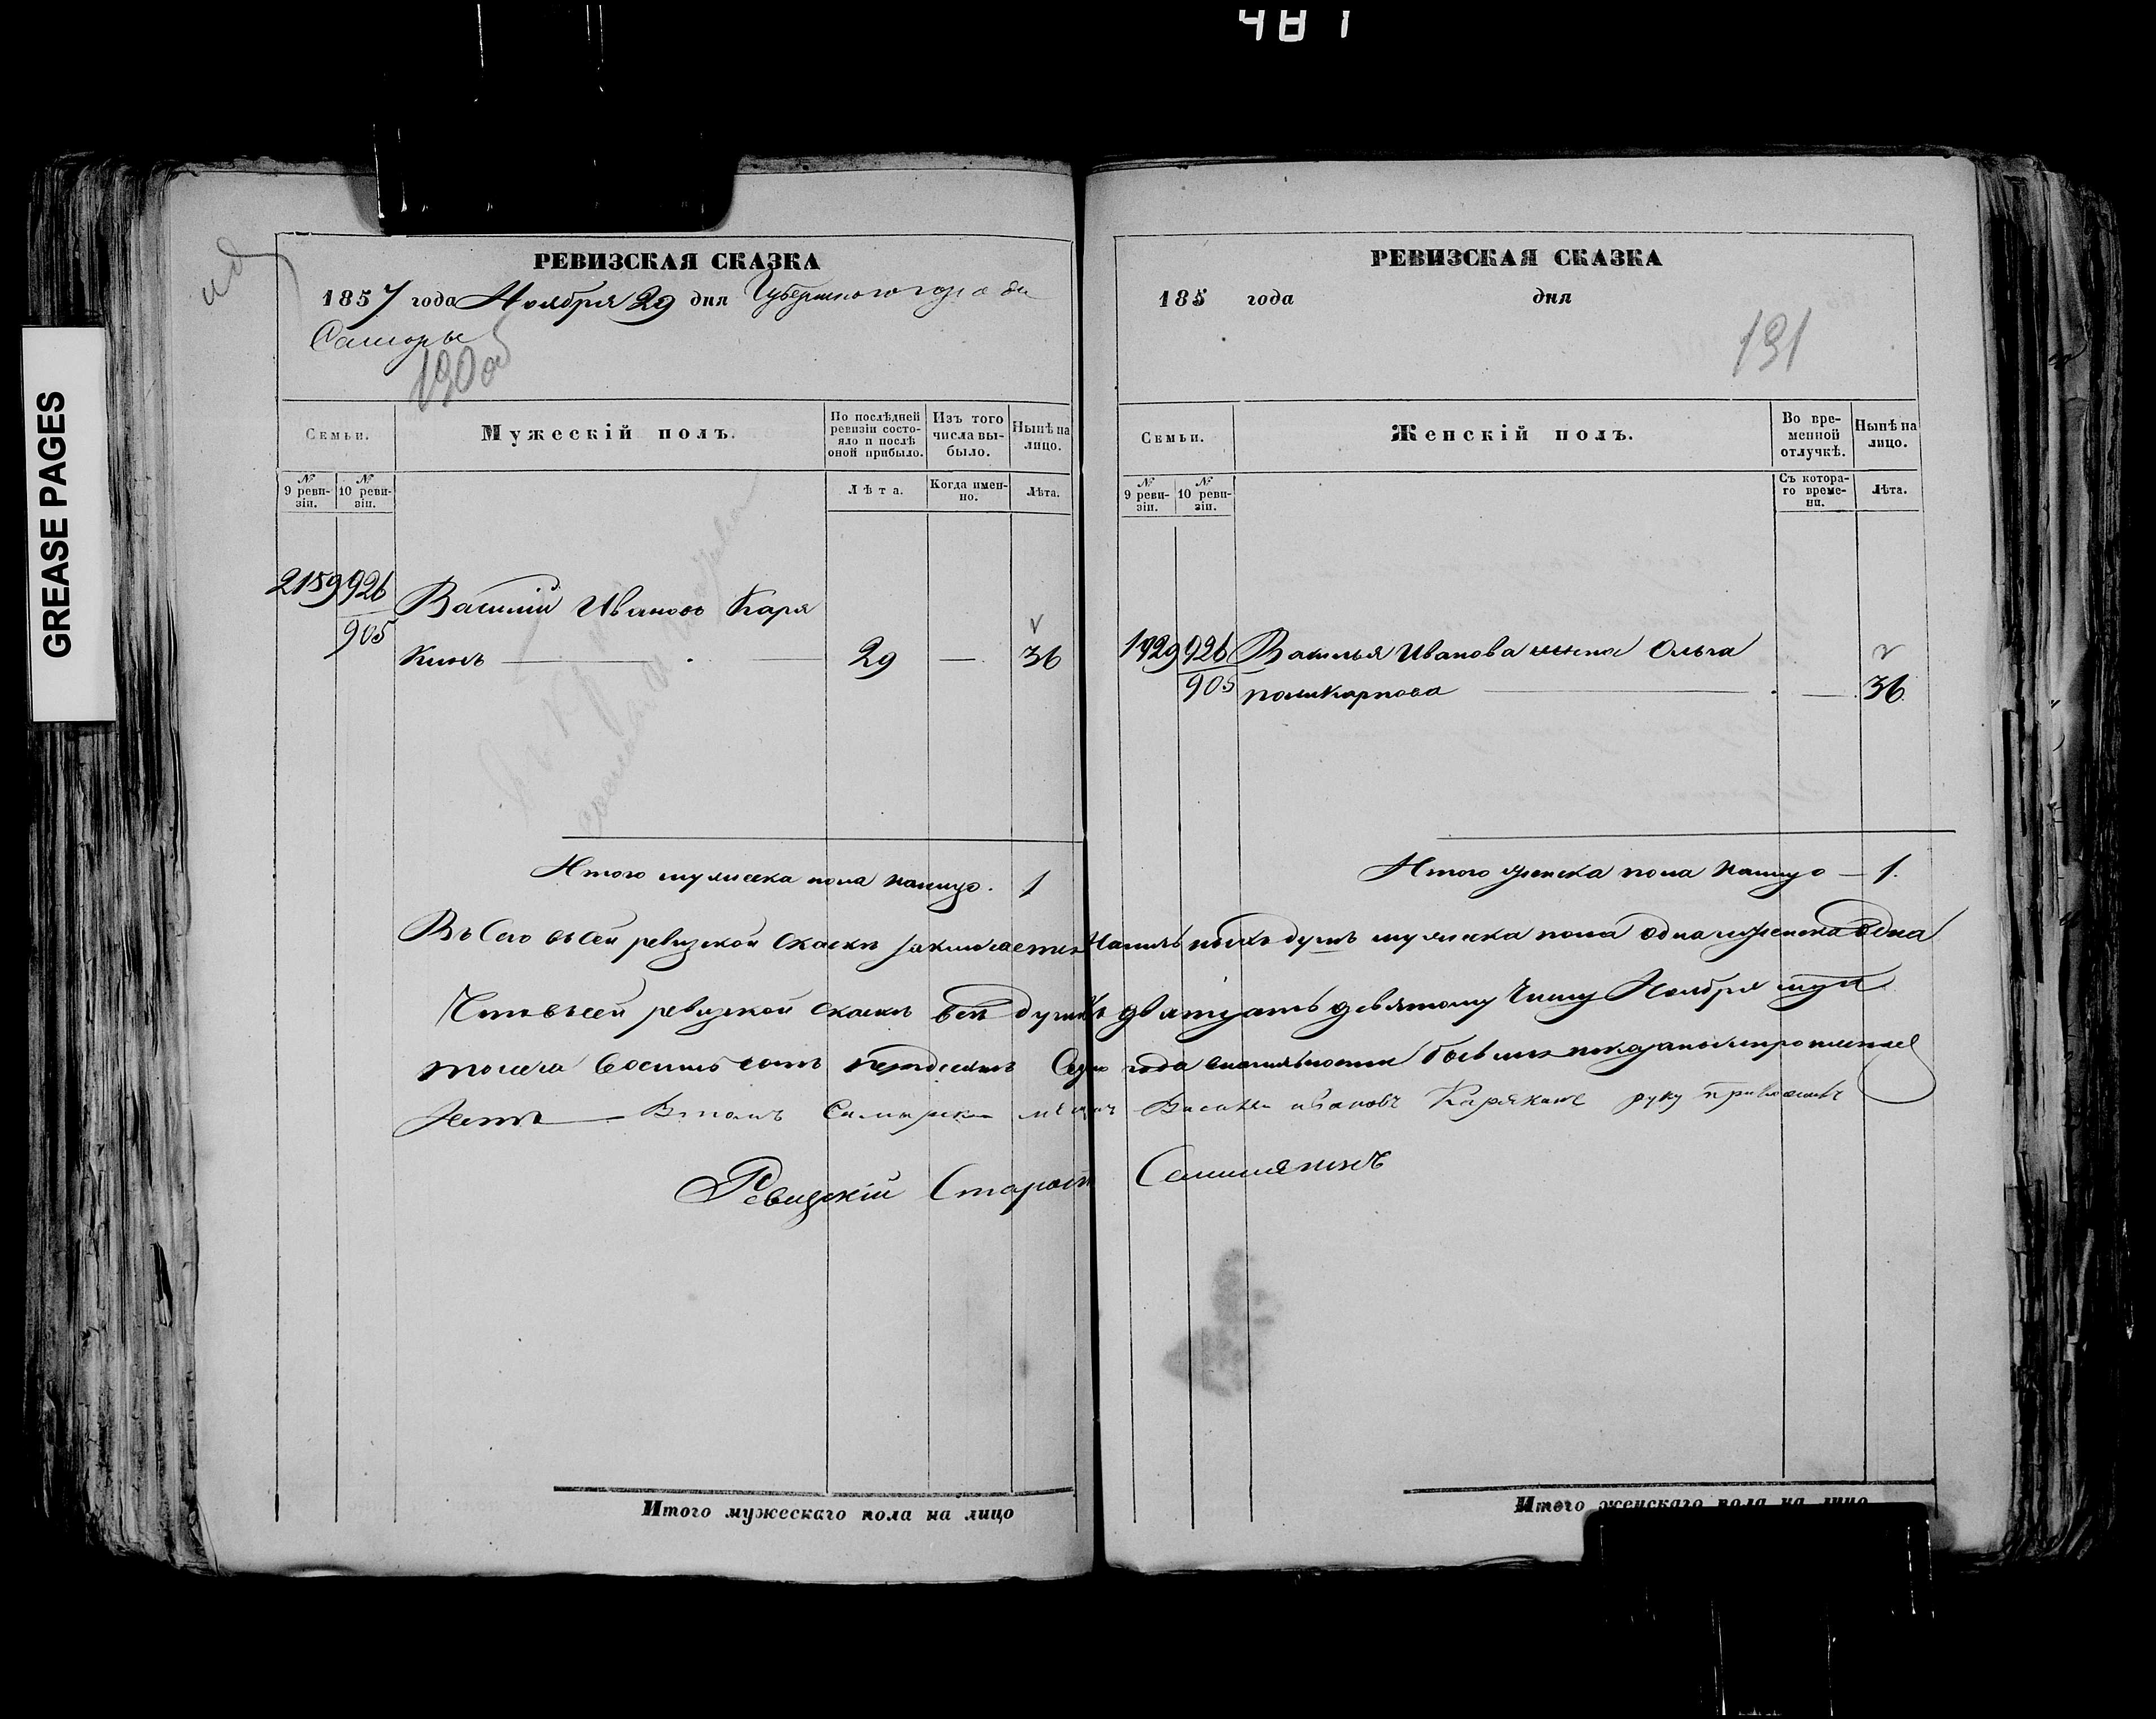 481
GREASE PAGES
РЕВИЗСКАЯ СКАЗКА
1857 года Ноября 29 дня Губернского города
Самары
190об
Семьи.
Мужескій полъ.
По послѣдней ревизіи состояло и послѣ оной прибыло.
Изъ того числа выбыло.
Нынѣ на лицо.
№ 9 ревизіи.
№ 10 ревизіи.
Лѣта.
Когда именно.
Лѣта.
2159 926
905
Василій Ивановъ Каря
кинъ 29 — 36
Итого мужеска пола налицо. 1
РЕВИЗСКАЯ СКАЗКА
185 года дня
191
Семьи.
Женскій полъ.
Во временной отлучкѣ.
Нынѣ на лицо.
№ 9 ревизіи.
№ 10 ревизіи.
Съ котораго времени.
Лѣта.
1929 926 Василья Иванова жена Ольга
905 поликарпова — 36
Итого женска пола налицо — 1.
Въсего въсей ревизской скаске заключается налицо душъ мужеска пола одна женска одна
Что въсей ревизской скаске все душе къ двятцать девятому числу Ноября
тысеча восимь сотъ года бывшие показаны
лете Втомъ Самарской Василей ивановъ Карякинъ руку приложилъ
Ревизскій Староста
Итого мужескаго пола на лицо
Итого женскаго пола на лицо